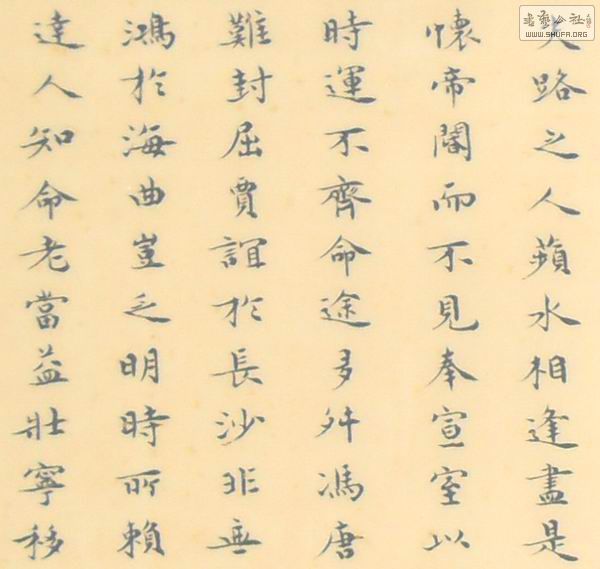 失路之人蘋水相逢盡是
懷帝閽而不見奉宣室以
時運不齊命途多舛馮唐
難封屈賈誼於長沙非無
鴻於海曲豈乏明時所賴
達人知命老當益壯寧移
書藝公社
WWW.SHUFA.ORG